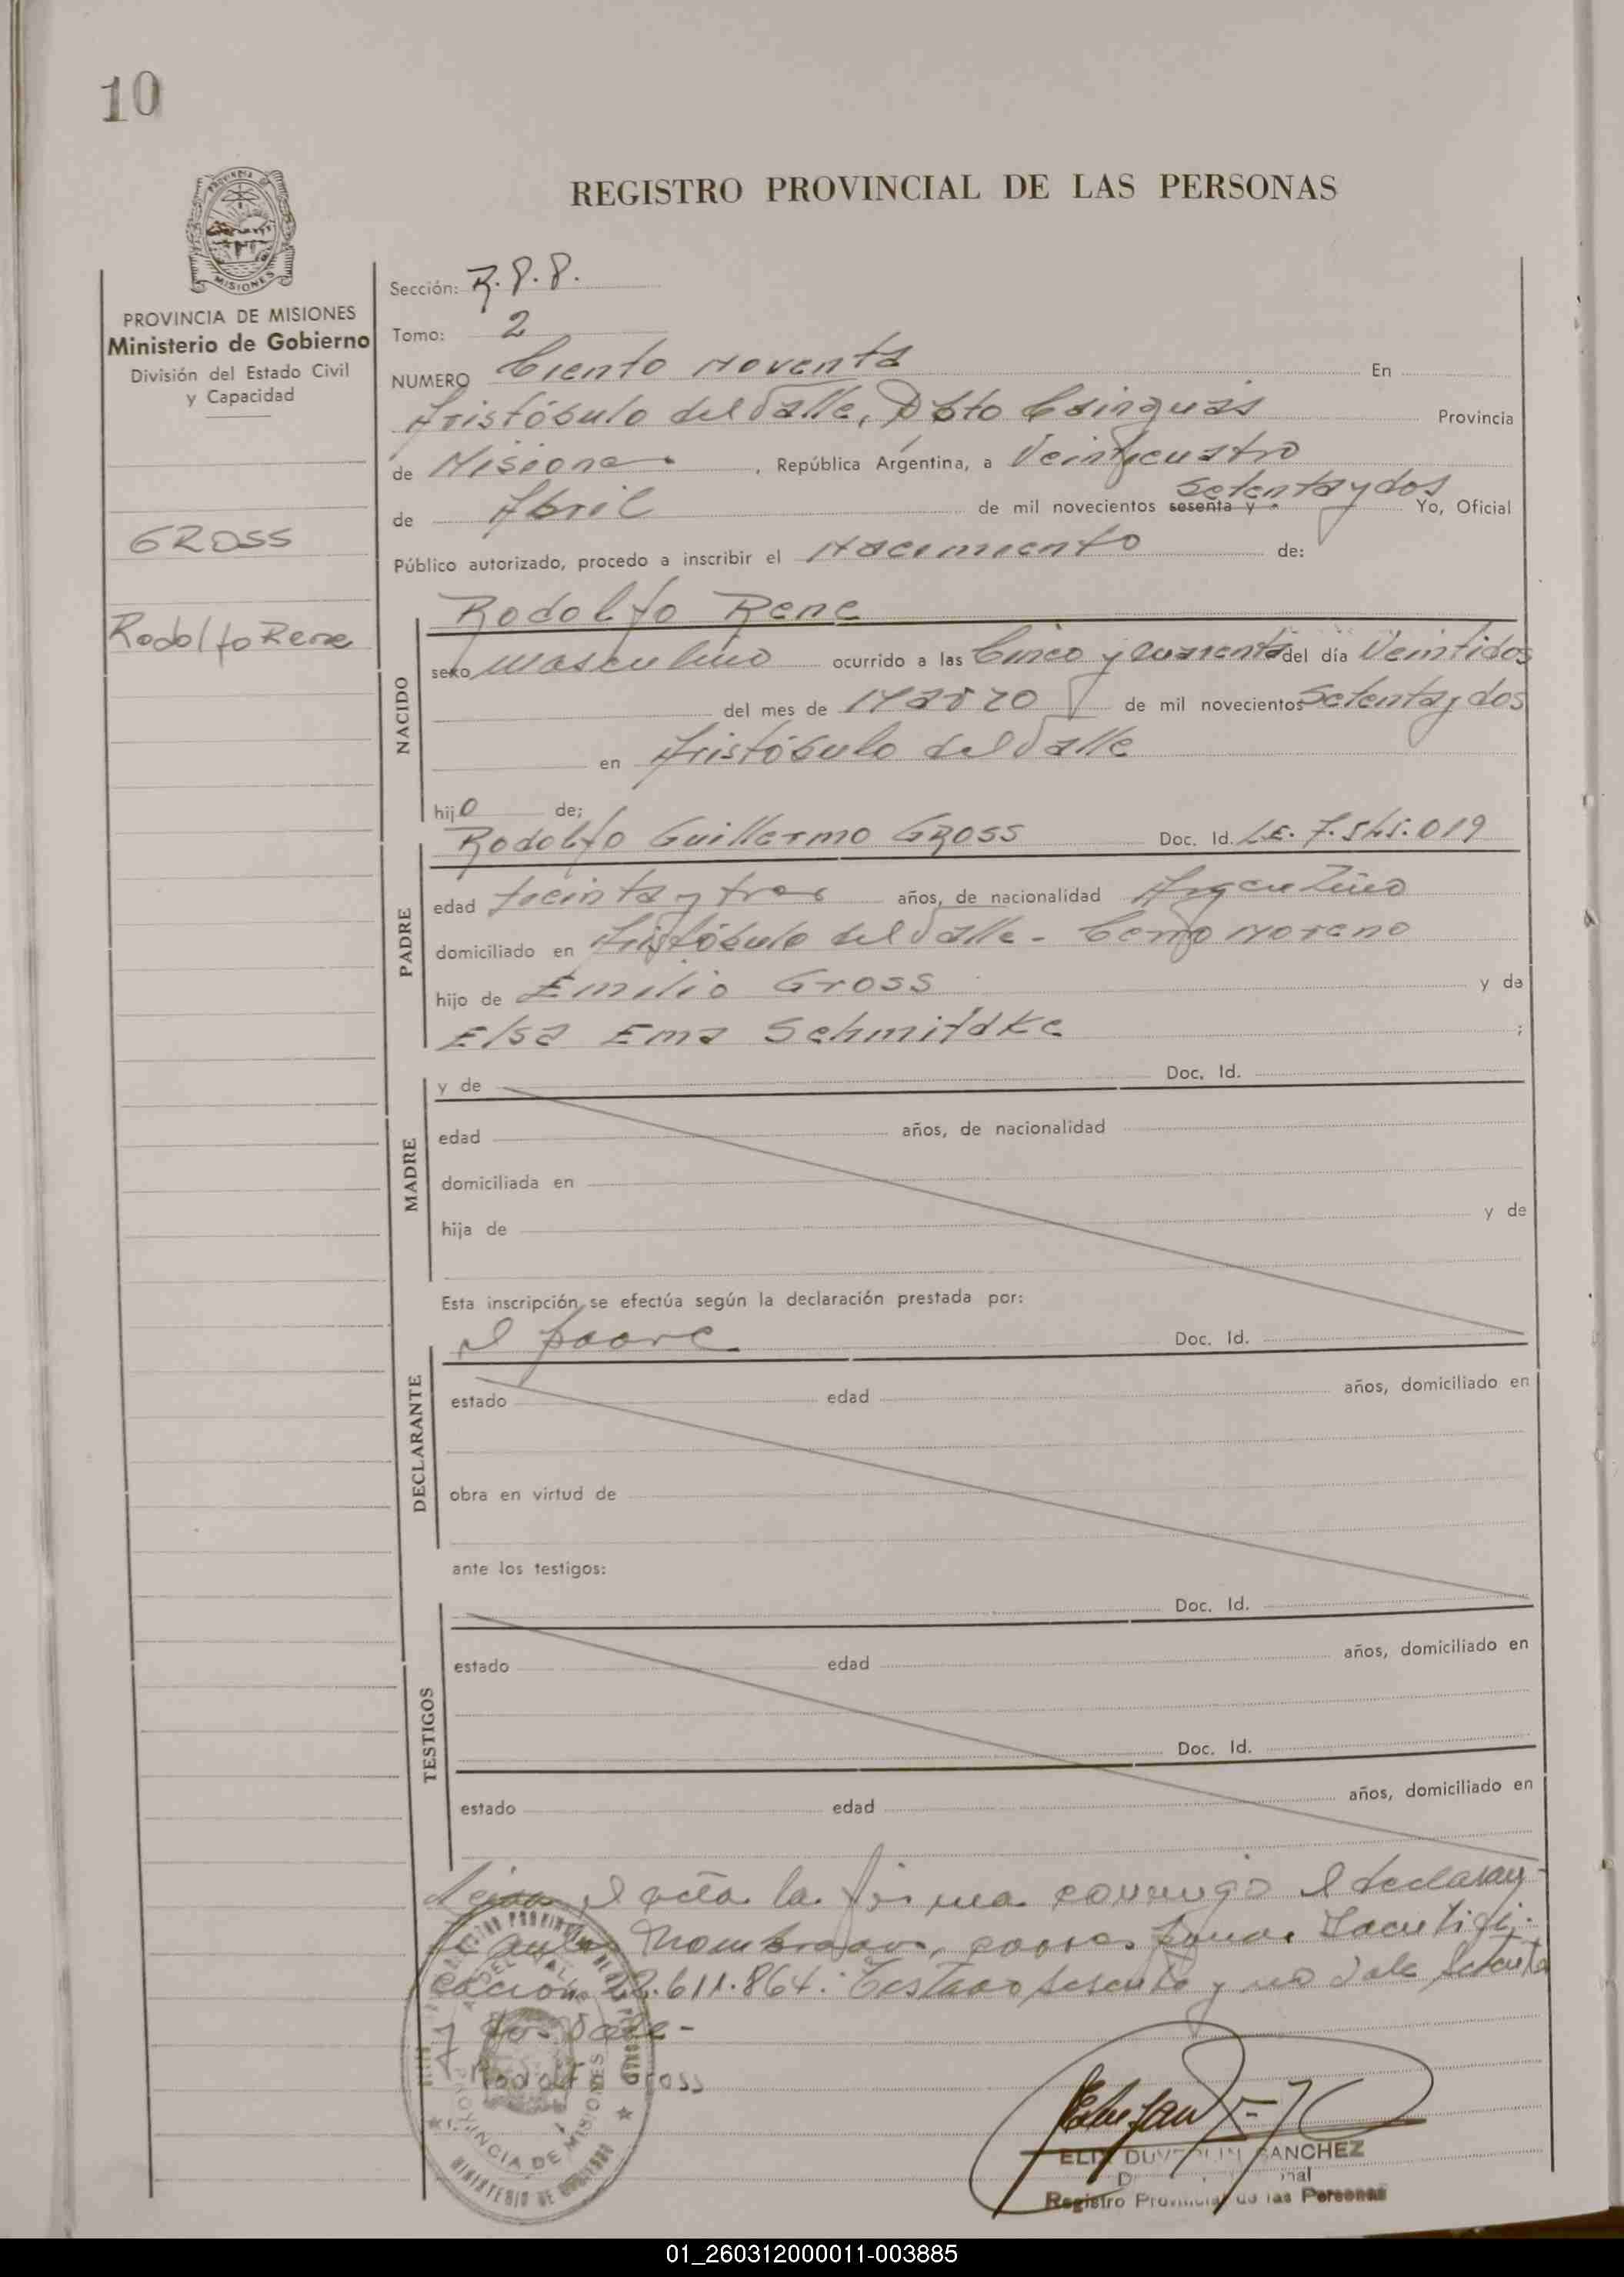 10
REGISTRO PROVINCIAL DE LAS PERSONAS
PROVINCIA DE MISIONES
Ministerio de Gobierno
División del Estado Civil
y Capacidad
GROSS
Rodolfo Rene
Sección: R.P.P.
Tomo: 2
NUMERO Ciento Noventa En
Aristóbulo del Valle, Dpto Cainguás Provincia
de Misiones, República Argentina, a Veinticuatro
de Abril de mil novecientos sesenta y setenta y dos Yo, Oficial
Público autorizado, procedo a inscribir el Nacimiento de:
NACIDO
Rodolfo Rene
sexo Masculino ocurrido a las Cinco y cuarenta del día Veintidos
del mes de Marzo de mil novecientos Setenta y dos
en Aristóbulo del Valle
hijo de;
PADRE
Rodolfo Guillermo GROSS Doc. Id. L.E. 7.545.019
edad treinta y tres años, de nacionalidad Argentino
domiciliado en Aristóbulo del Valle - Cerro Moreno
hijo de Emilio Gross y de
Elsa Ema Schmitdke ;
MADRE
y de Doc. Id.
edad años, de nacionalidad
domiciliada en
hija de y de
Esta inscripción se efectúa según la declaración prestada por:
DECLARANTE
el padre Doc. Id.
estado edad años, domiciliado en
obra en virtud de
ante los testigos:
TESTIGOS
Doc. Id.
estado edad años, domiciliado en
Doc. Id.
estado edad años, domiciliado en
el acta la firma conmigo el declaran-
te antes nombrado,
22.611.864. Testado sesenta y no vale setenta
y dos Vale-
Rodolfo Gross
PROVINCIA DE MISIONES
MINISTERIO DE GOBIERNO
SANCHEZ
Registro Provincial de las Personas
01_260312000011-003885